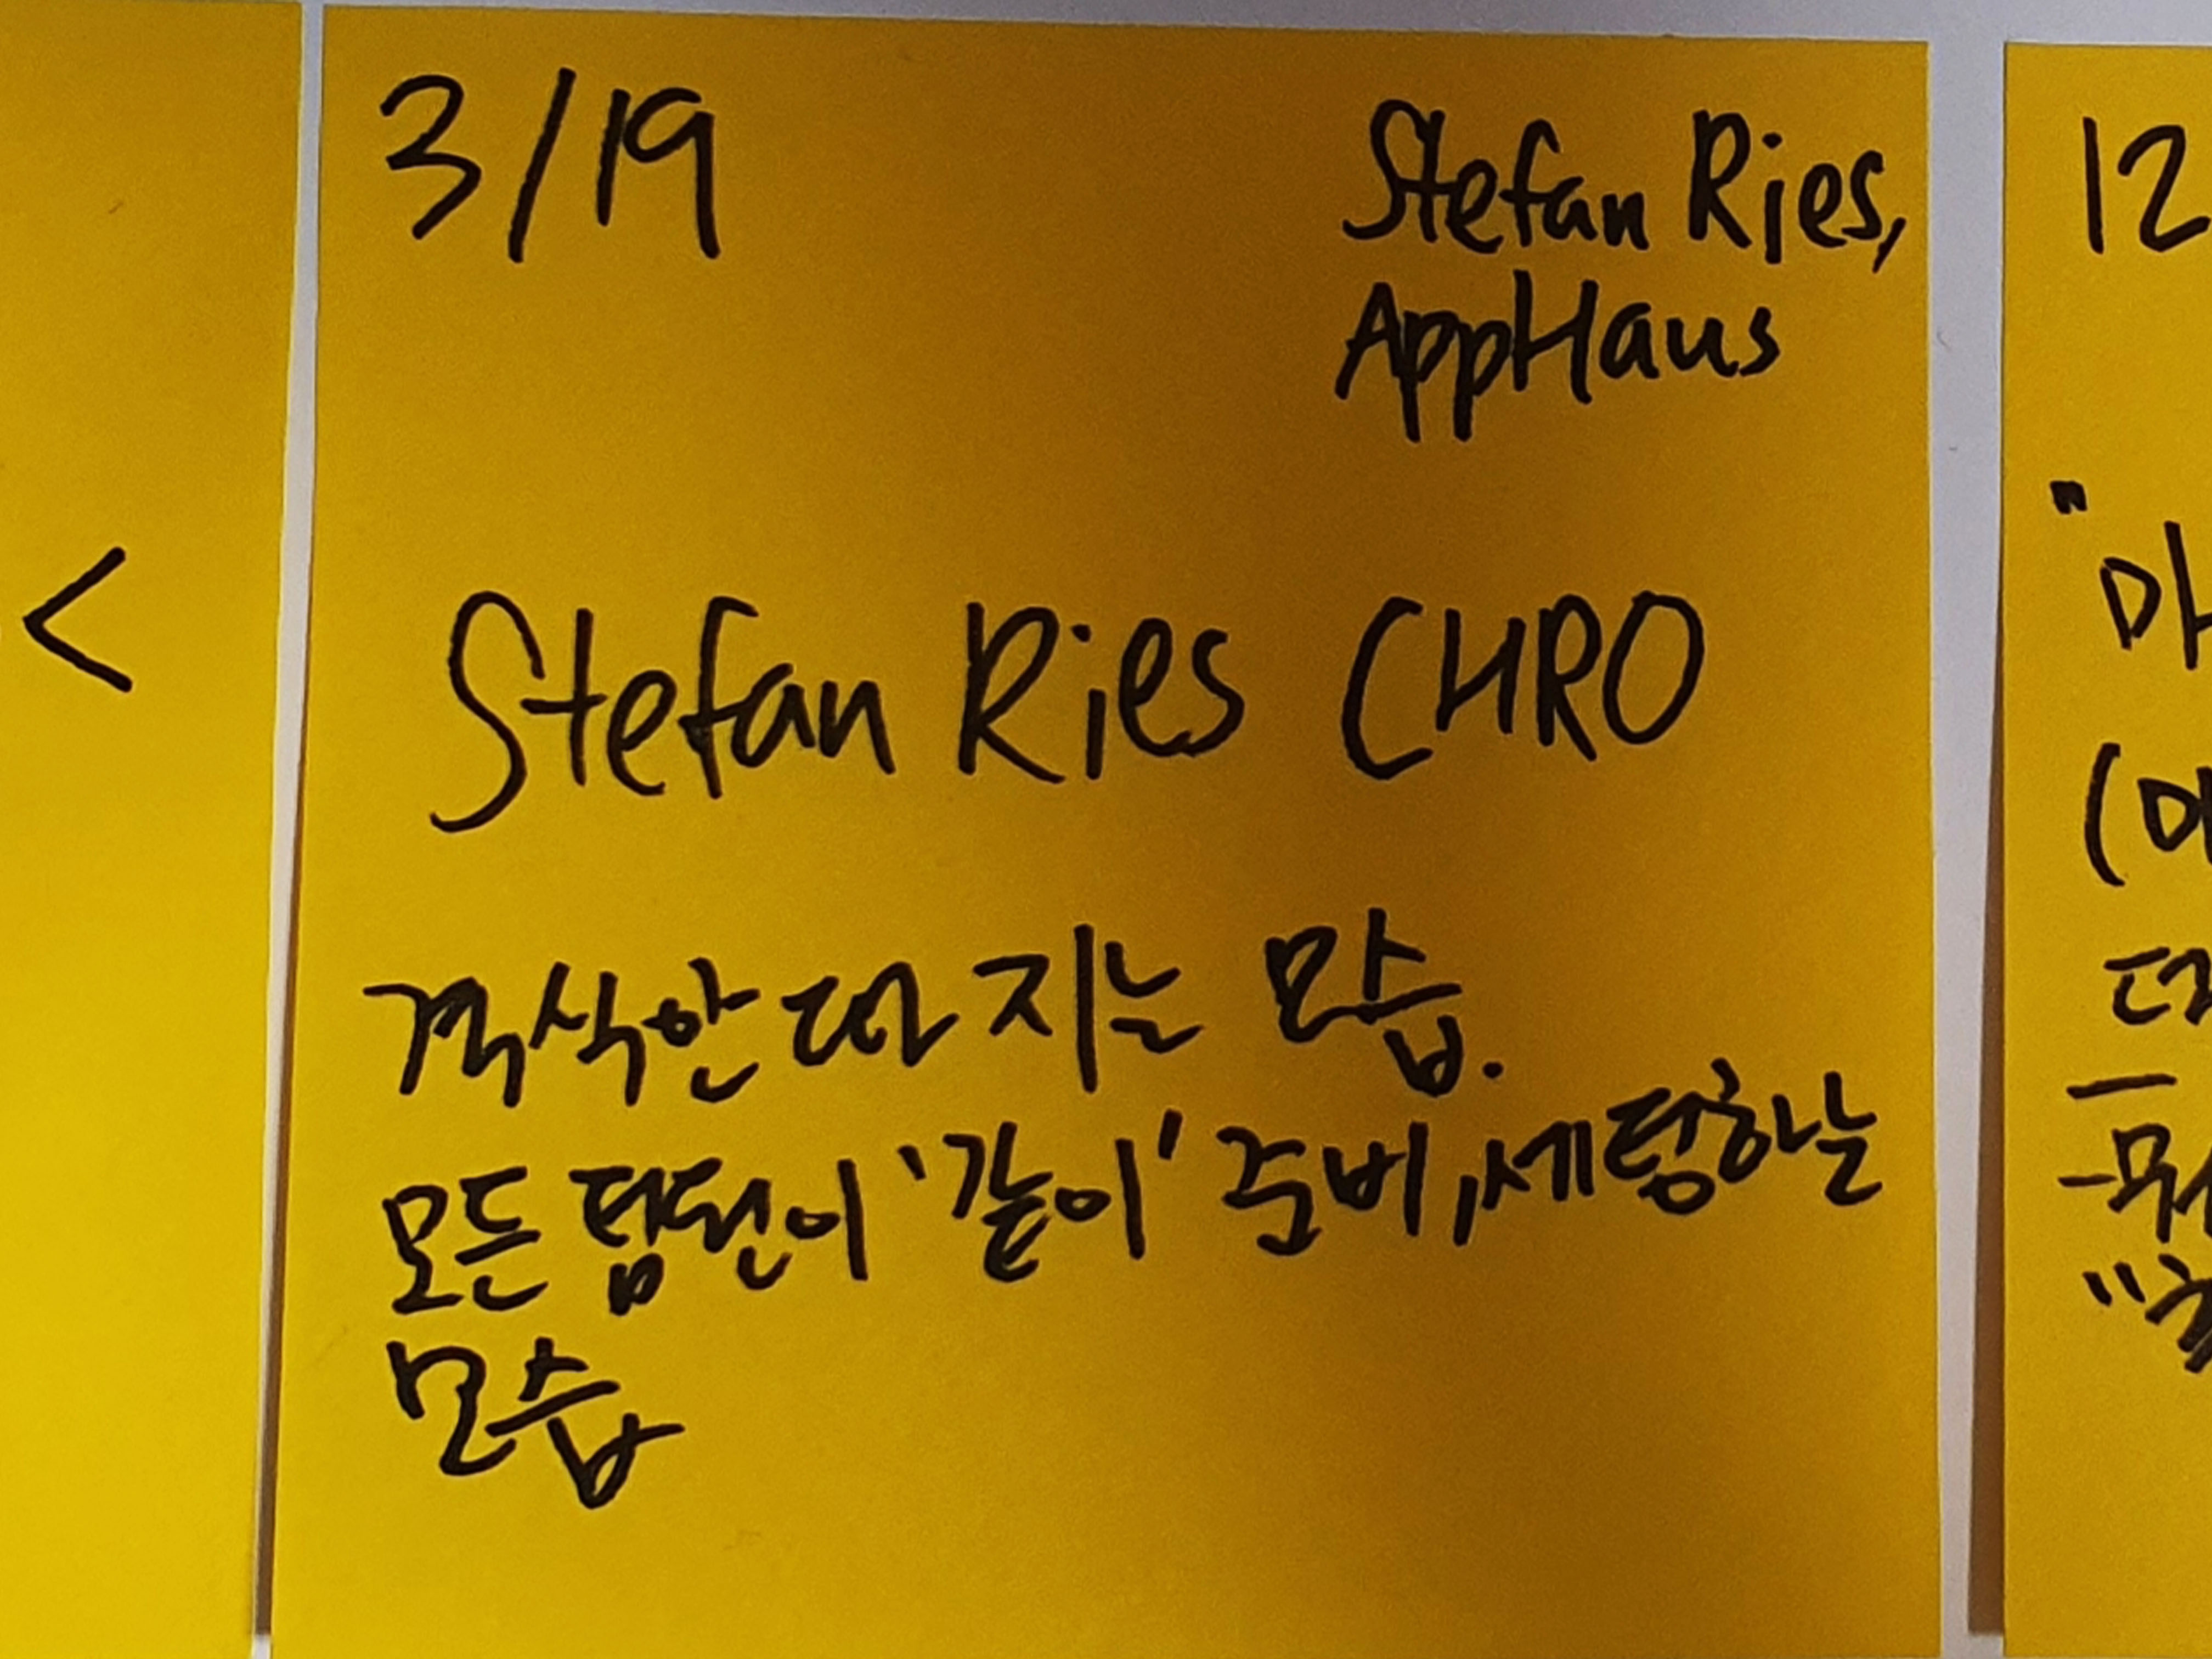 3/19
Stefan Ries,
AppHaus
Stefan Ries CHRO
격식안 따지는 모습.
모든 팀원이 '같이' 준비, 세팅하는
모습
<
12
"
마
(